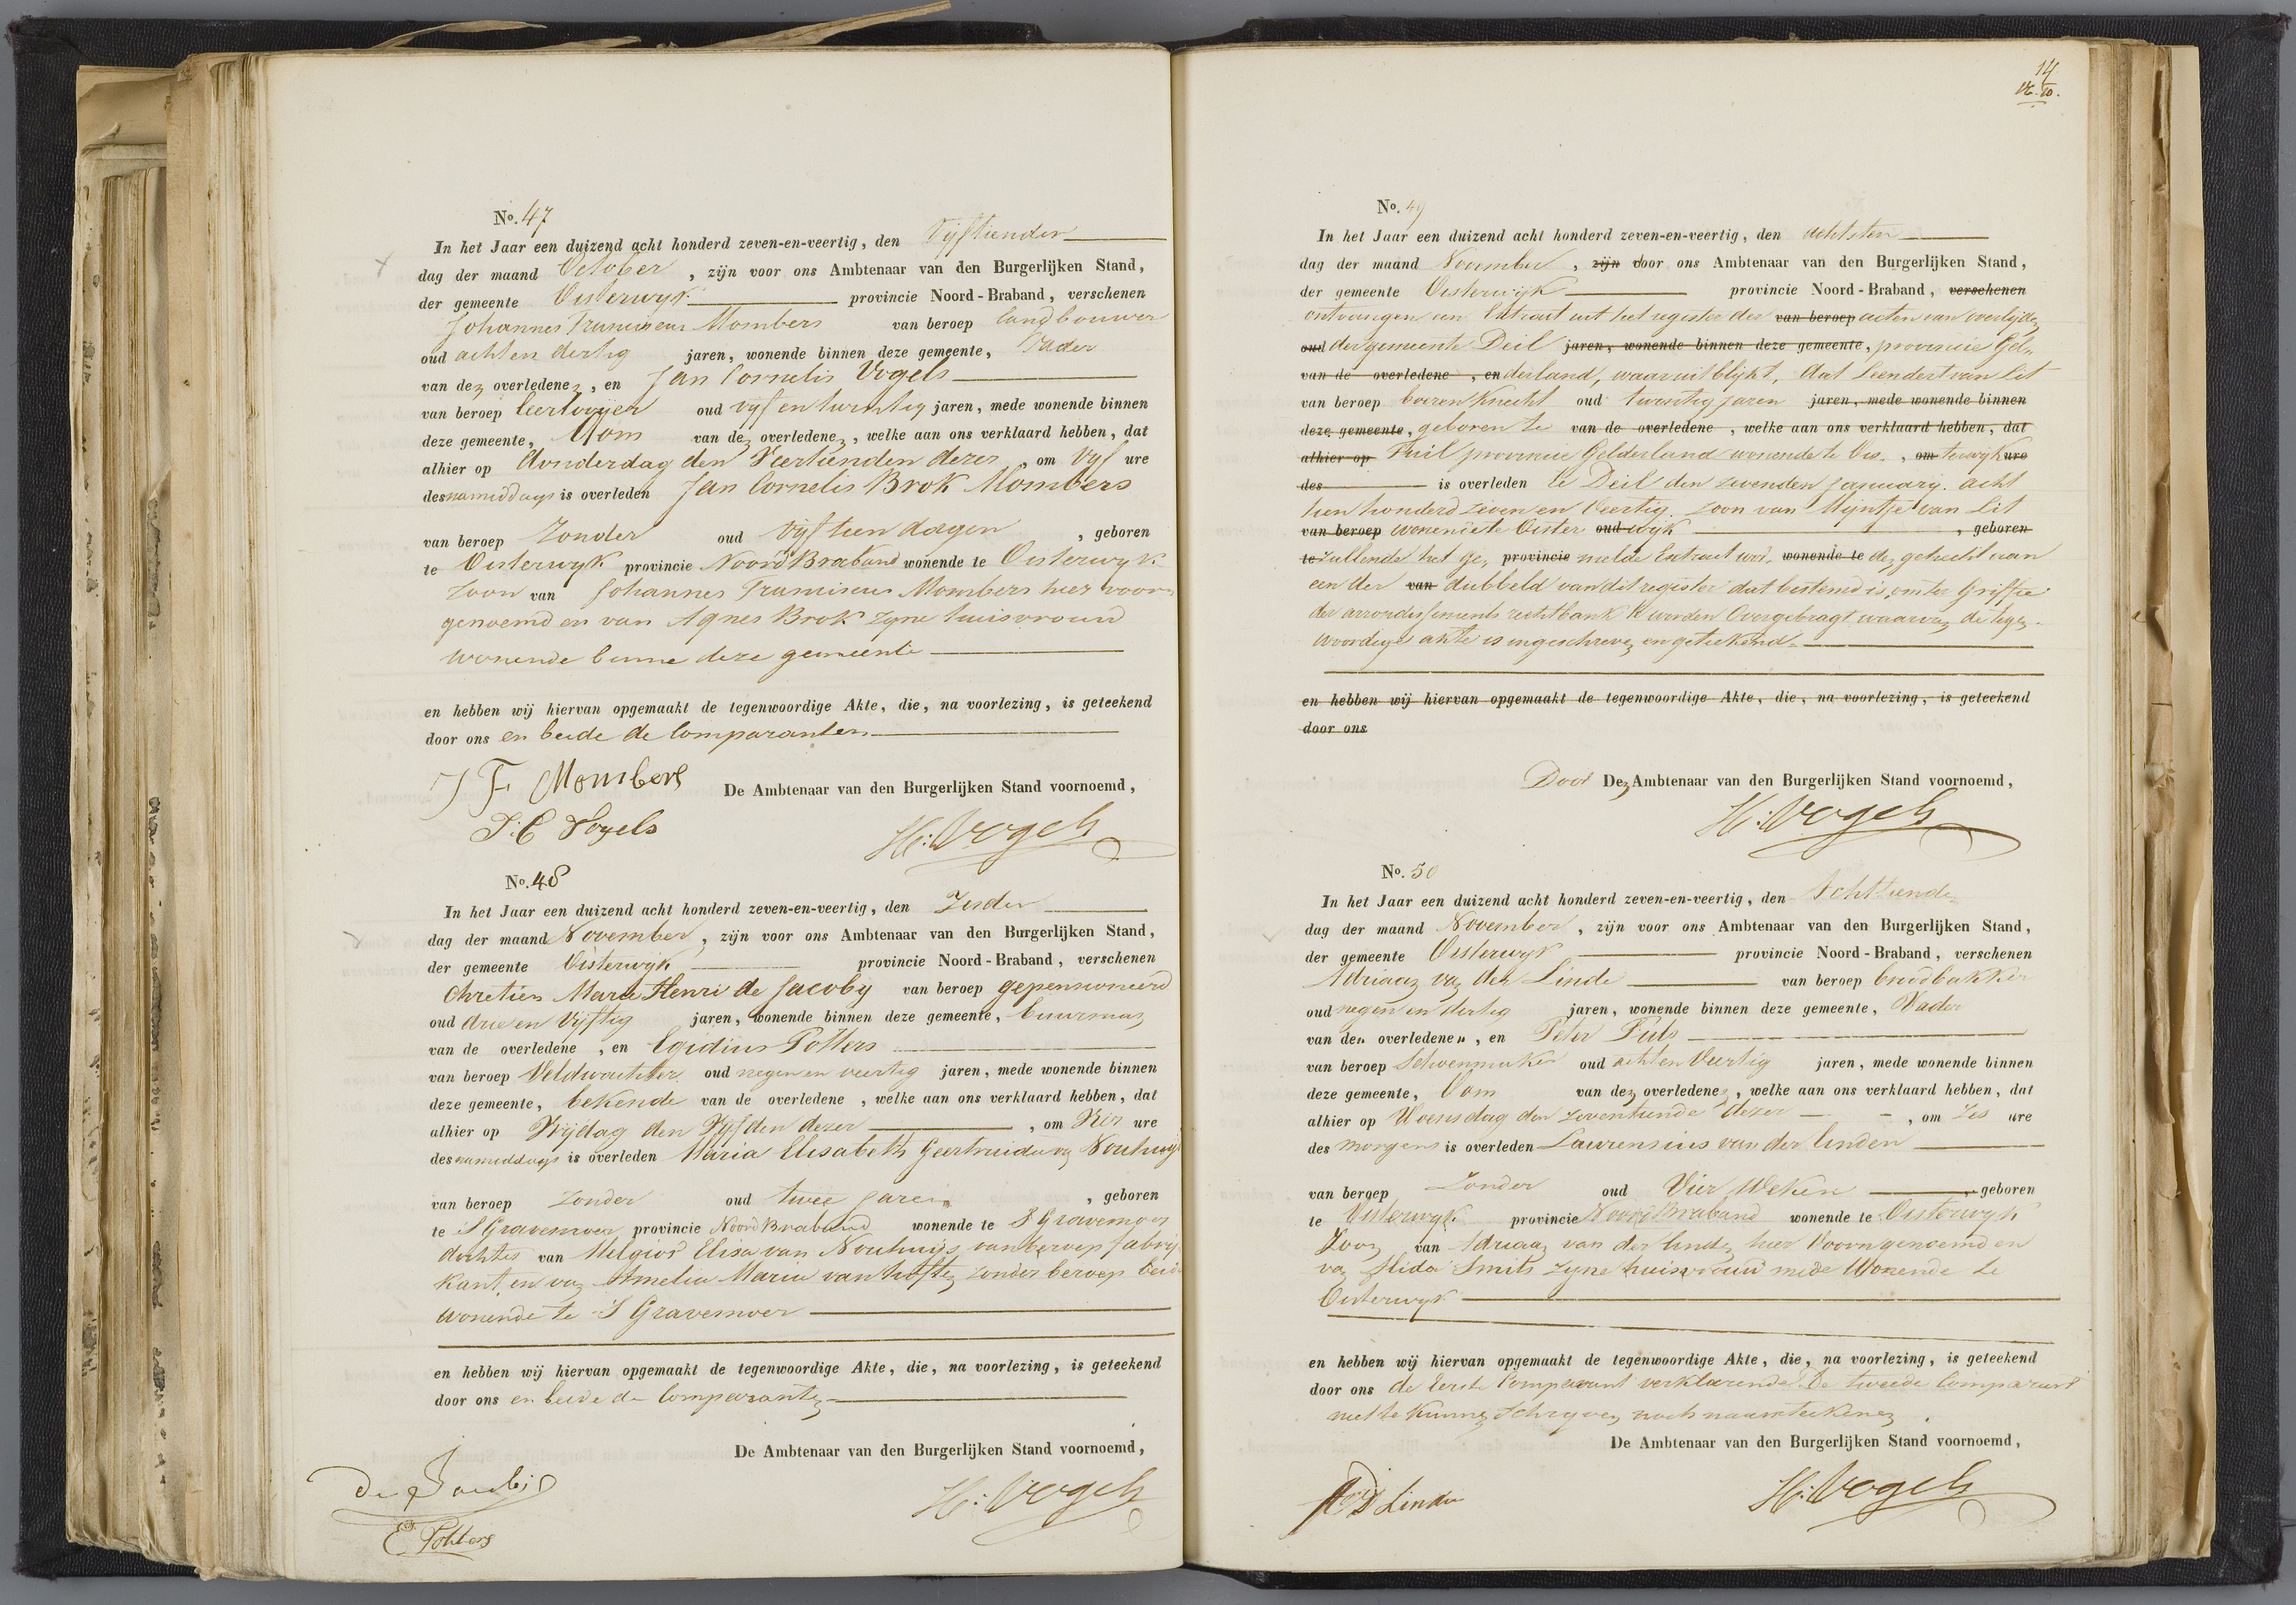 No. 47
In het Jaar een duizend acht honderd zeven-en-veertig, den Vijftienden
dag der maand October, zijn voor ons Ambtenaar van den Burgerlijken Stand,
der gemeente Oisterwyk provincie Noord-Braband, verschenen
Johannes Franciscus Mombers van beroep landbouwer
oud acht en dertig jaren, wonende binnen deze gemeente, Vader
van den overledenen, en Jan Cornelis Vogels
van beroep leerlooijer oud vyf en twintig jaren, mede wonende binnen
deze gemeente, Oom van den overledenen, welke aan ons verklaard hebben, dat
alhier op donderdag den Veertienden dezer, om Vyf ure
des namiddags is overleden Jan Cornelis Brok Mombers
van beroep Zonder oud Vyftien dagen, geboren
te Oisterwyk provincie Noord Braband wonende te Oisterwyk
Zoon van Johannes Franciscus Mombers hier voor
genoemd en van Agnes Brok zyne huisvrouw
wonende binne deze gemeente
en hebben wij hiervan opgemaakt de tegenwoordige Akte, die, na voorlezing, is geteekend
door ons en beide de Comparanten
J F Mombers De Ambtenaar van den Burgerlijken Stand voornoemd,
J. C Vogels H: Vogels
No. 48
In het Jaar een duizend acht honderd zeven-en-veertig, den Zesden
dag der maand November, zijn voor ons Ambtenaar van den Burgerlijken Stand,
der gemeente Oisterwyk provincie Noord-Braband, verschenen
Chretien Marie Henri de Jacoby van beroep gepensioneerd
oud drie en Vyftig jaren, wonende binnen deze gemeente, buurman
van de overledene, en Egidius Potters
van beroep Veldwachter oud negen en veertig jaren, mede wonende binnen
deze gemeente, bekende van de overledene, welke aan ons verklaard hebben, dat
alhier op Vrijdag den Vyfden dezer, om Vier ure
des namiddags is overleden Maria Elisabeth Geertruida van Nouhuys
van beroep Zonder oud twee Jaren, geboren
te S Gravemoer provincie Noord Braband wonende te S Gravemoer
dochter van Melgior Elisa van Nouhuijs van beroep fabrij
kant, en van Amelia Maria van hoften zonder beroep beide
wonende te S Gravemoer
en hebben wij hiervan opgemaakt de tegenwoordige Akte, die, na voorlezing, is geteekend
door ons en beide de Comparanten
De Ambtenaar van den Burgerlijken Stand voornoemd,
De Jacobi H: Vogels
E Potters
14
No. 49
In het Jaar een duizend acht honderd zeven-en-veertig, den achtsten
dag der maand November, zijn door ons Ambtenaar van den Burgerlijken Stand,
der gemeente Oisterwijk provincie Noord-Braband, verschenen
ontvangen een Extract uit het register der van beroep acten van overlijden
oud der gemeente Deil jaren, wonende binnen deze gemeente, provincie Gel
van de overledene, en derland, waaruit blijkt, dat Leendert van Lit
van beroep boerenknecht oud twintig jaren jaren, mede wonende binnen
deze gemeente, geboren te van de overledene, welke aan ons verklaard hebben, dat
alhier op Tuil provincie Gelderland wonende te Ois, om terwyk ure
des is overleden te Deil den zevenden January acht
tien honderd zeven en Veertig. zoon van Mijntje van Lit
van beroep wonende te Oister oud wyk, geboren
te zullende het ge, provincie melde Extract wor, wonende te den gehecht aan
een der van dubbeld van dit register dat bestemd is, om ter Griffie
der arrondissements rechtbank te worden Overgebragt waarvan de tegen
woordige akte is ingeschreven en geteekend
en hebben wij hiervan opgemaakt de tegenwoordige Akte, die, na voorlezing, is geteekend
door ons
Door Den Ambtenaar van den Burgerlijken Stand voornoemd,
H: Vogels
No. 50
In het Jaar een duizend acht honderd zeven-en-veertig, den Achttienden
dag der maand November, zijn voor ons Ambtenaar van den Burgerlijken Stand,
der gemeente Oisterwyk provincie Noord-Braband, verschenen
Adriaan van der Linde van beroep broodbakker
oud negen en dertig jaren, wonende binnen deze gemeente, Vader
van den overledenen, en Peter
van beroep Schoenmaker oud acht en Veertig jaren, mede wonende binnen
deze gemeente, Oom van den overledenen, welke aan ons verklaard hebben, dat
alhier op Woensdag den zeventiende dezer, om zes ure
des morgens is overleden Laurensius van der linden
van beroep Zonder oud Vier Weken, geboren
te Oisterwyk provincie Noord Braband wonende te Oisterwyk
Zoon van Adriaan van der linden hier Voorn genoemd en
van Alida Smits zyne huisvrouw mede Wonende te
Oisterwyk
en hebben wij hiervan opgemaakt de tegenwoordige Akte, die, na voorlezing, is geteekend
door ons de eerste Comparant verklarende de tweede Comparant
niet te kunnen Schryven noch naamteekenen
De Ambtenaar van den Burgerlijken Stand voornoemd,
Linden H: Vogels